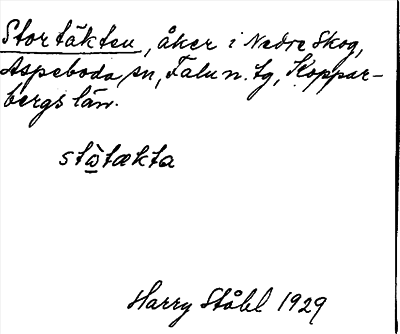 Stortäkten, åker i Nedre Skog,
Aspeboda sn, Falu n. tg, Koppar-
bergs län.
stòtækta
Harry Ståhl 1929